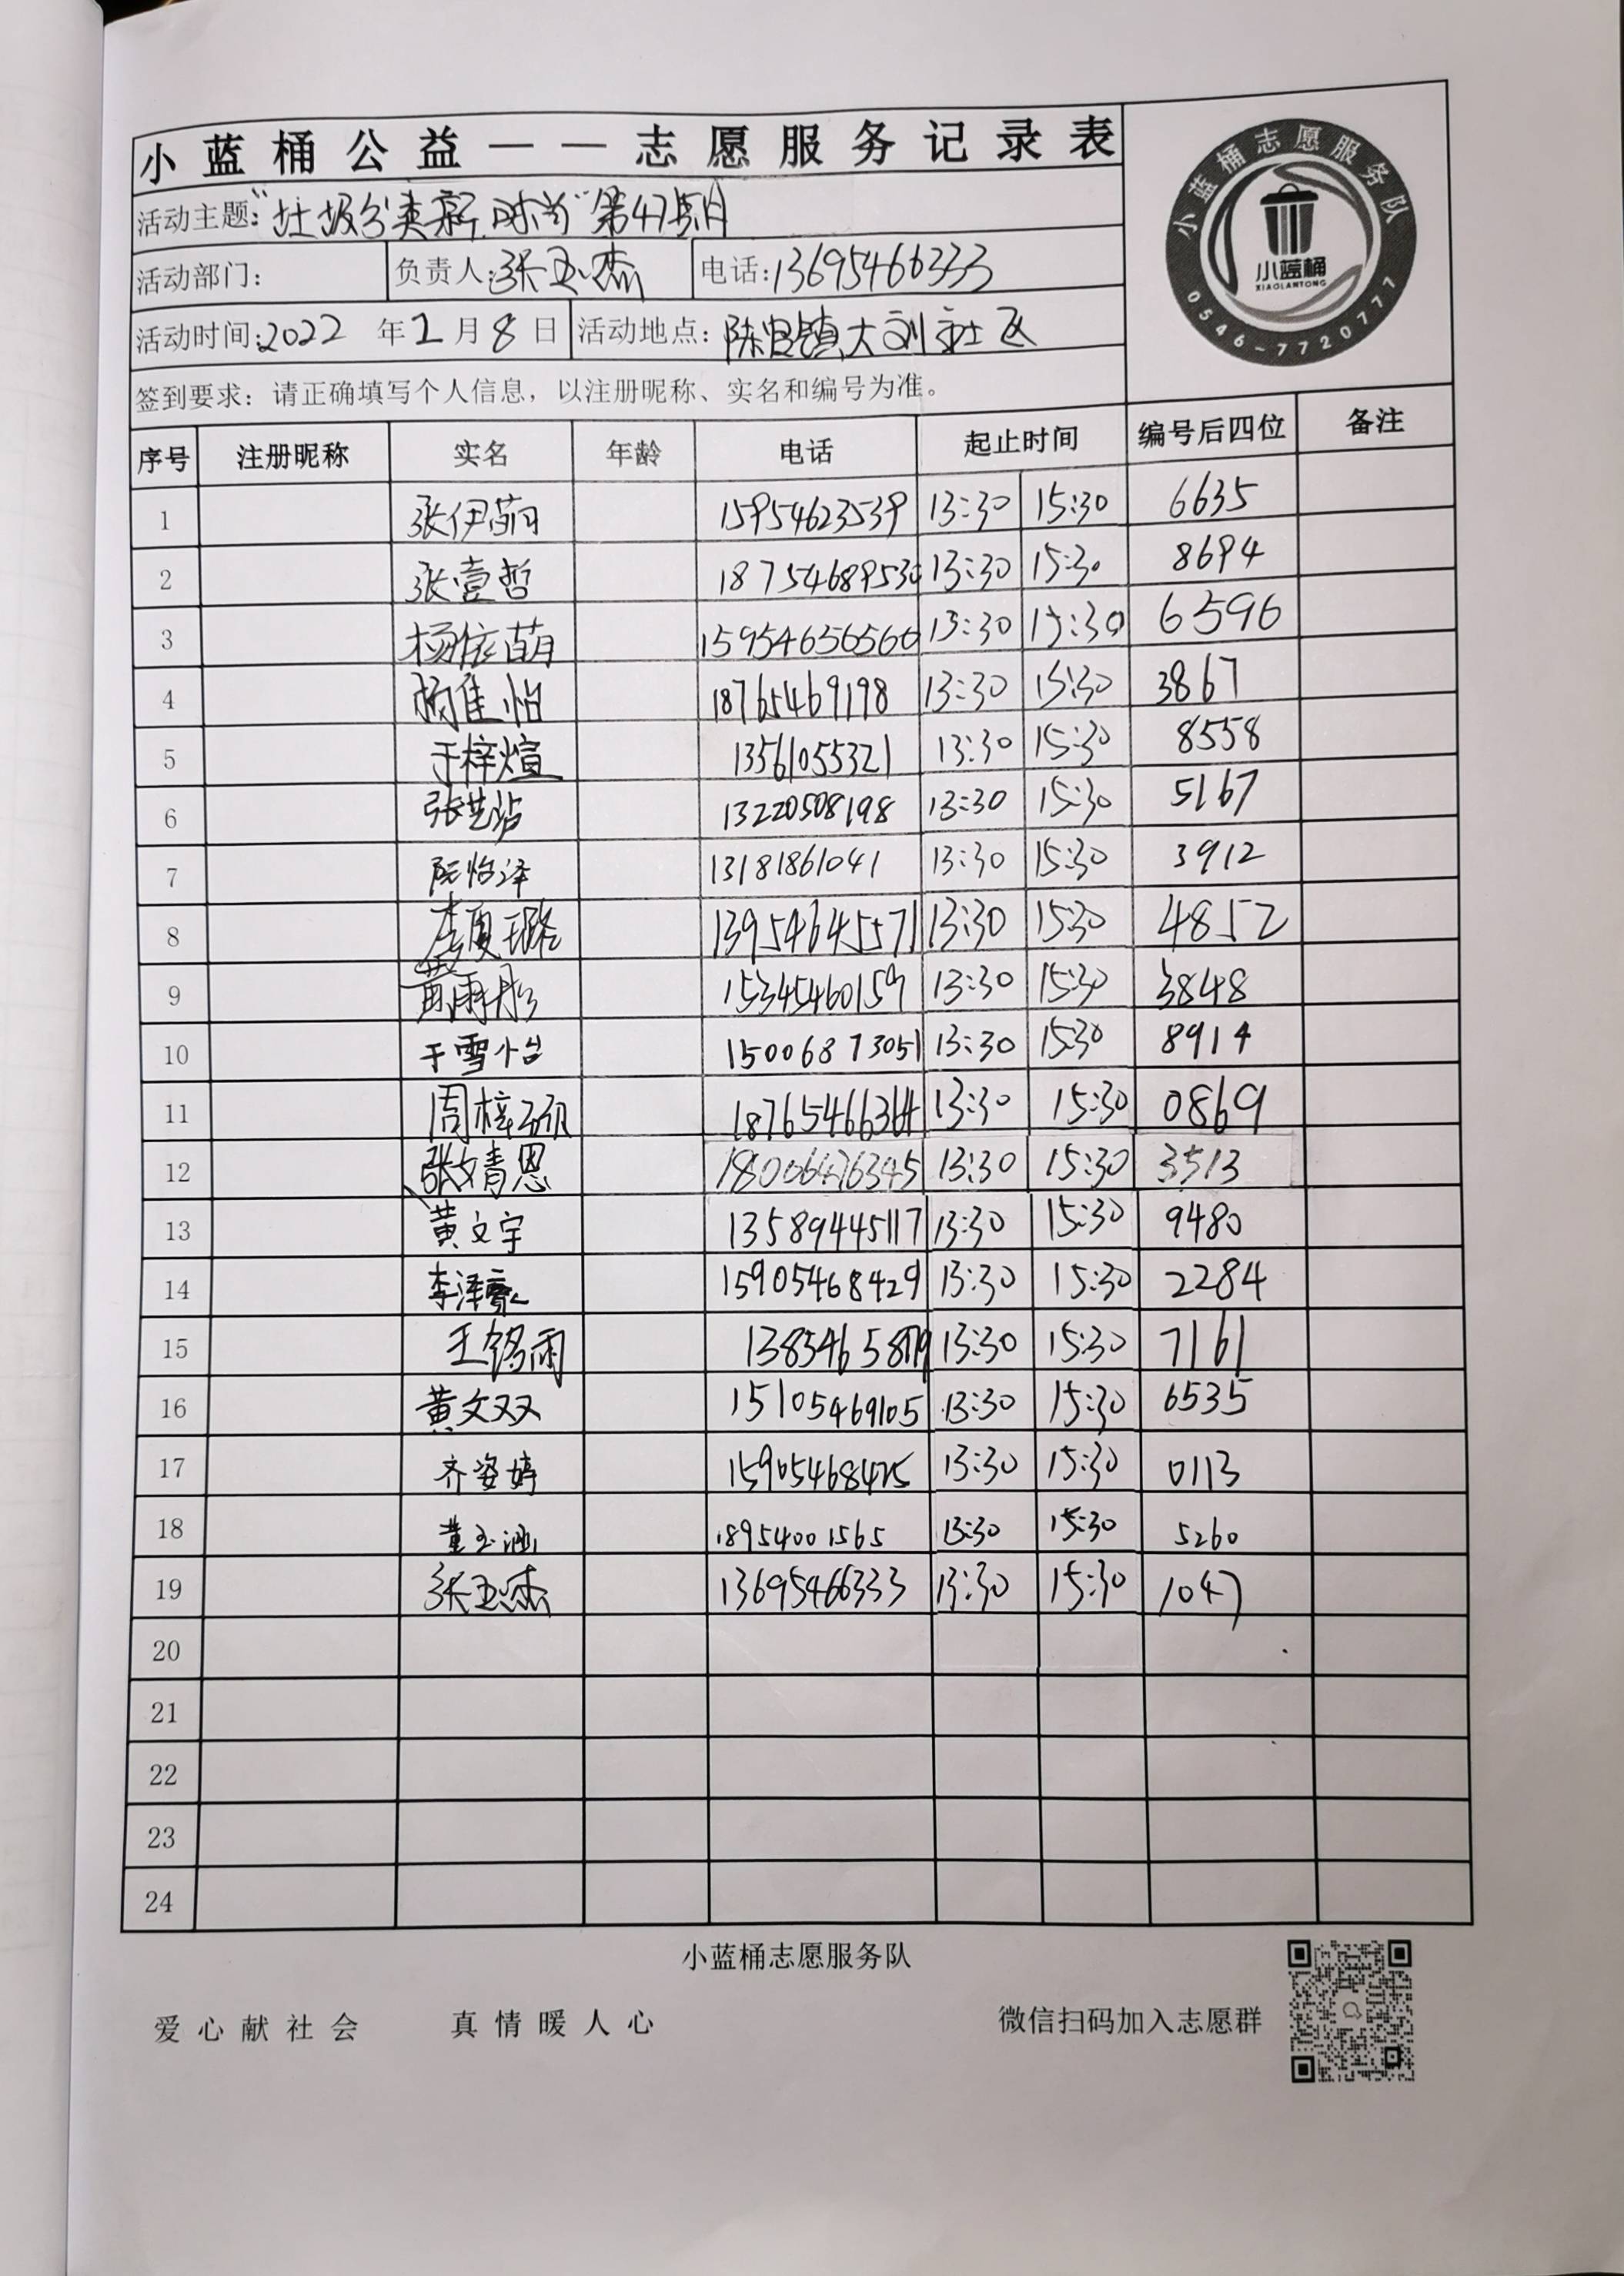 小蓝桶公益——志愿服务记录表
小蓝桶志愿服务队
小蓝桶
XIAOLANTONG
0546-7720777
活动主题:"垃圾分类新时尚"第47期
活动部门: 负责人:张玉杰 电话:13695466333
活动时间:2022年2月8日 活动地点:陈官镇大刘社区
签到要求:请正确填写个人信息,以注册昵称、实名和编号为准。
序号 注册昵称 实名 年龄 电话 起止时间 编号后四位 备注
1 张伊蒴 15954623539 13:30 15:30 6635
2 张壹哲 18754689530 13:30 15:30 8694
3 杨依萌 15954656566 13:30 15:30 6596
4 杨佳怡 18765469198 13:30 15:30 3867
5 于梓煊 13561055321 13:30 15:30 8558
6 张艺 13220508198 13:30 15:30 5167
7 阮怡泽 13181861041 13:30 15:30 3912
8 李夏璐 13954645571 13:30 15:30 4852
9 黄雨彤 15345460159 13:30 15:30 3848
10 于雪怡 15006873051 13:30 15:30 8914
11 周梓 18765466364 13:30 15:30 0869
12 张婧恩 18006476345 13:30 15:30 3513
13 黄文宇 13589445117 13:30 15:30 9480
14 李泽豪 15905468429 13:30 15:30 2284
15 王锡雨 13:30 15:30 7161
16 黄文双 15105469105 13:30 15:30 6535
17 齐姿婷 15905468475 13:30 15:30 0113
18 董玉涵 18954001565 13:30 15:30 5260
19 张玉杰 13695466333 13:30 15:30 1047
20
21
22
23
24
小蓝桶志愿服务队
爱心献社会 真情暖人心 微信扫码加入志愿群